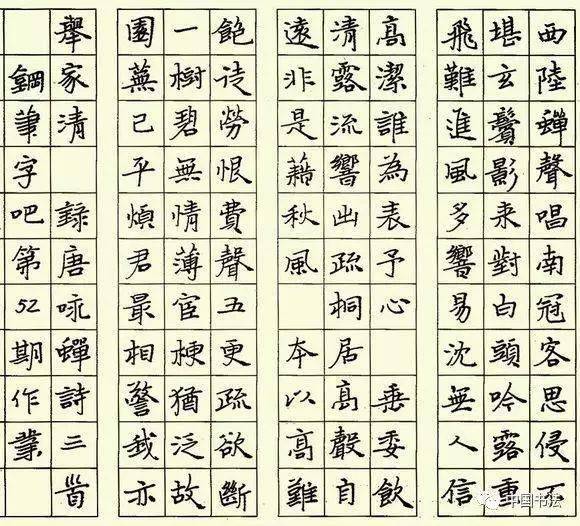 西陸蟬聲唱南冠客思侵不
堪玄鬢影来對白頭吟露重
飛難進風多響易沈無人信
高潔誰為表予心 垂委飲
清露流響出疏桐居高聲自
遠非是藉秋風 本以高難
飽徒勞恨費聲五更疏欲斷
一樹碧無情薄宦梗猶泛故
園蕪已平煩君最相警我亦
舉家清 録唐咏蟬詩三首
鋼筆字吧第52期作業
中国书法